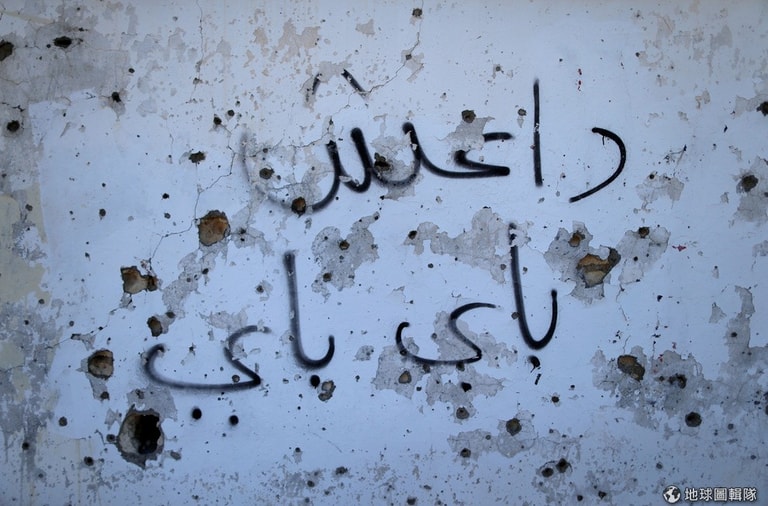 داعش
باي باي
地球圖輯隊